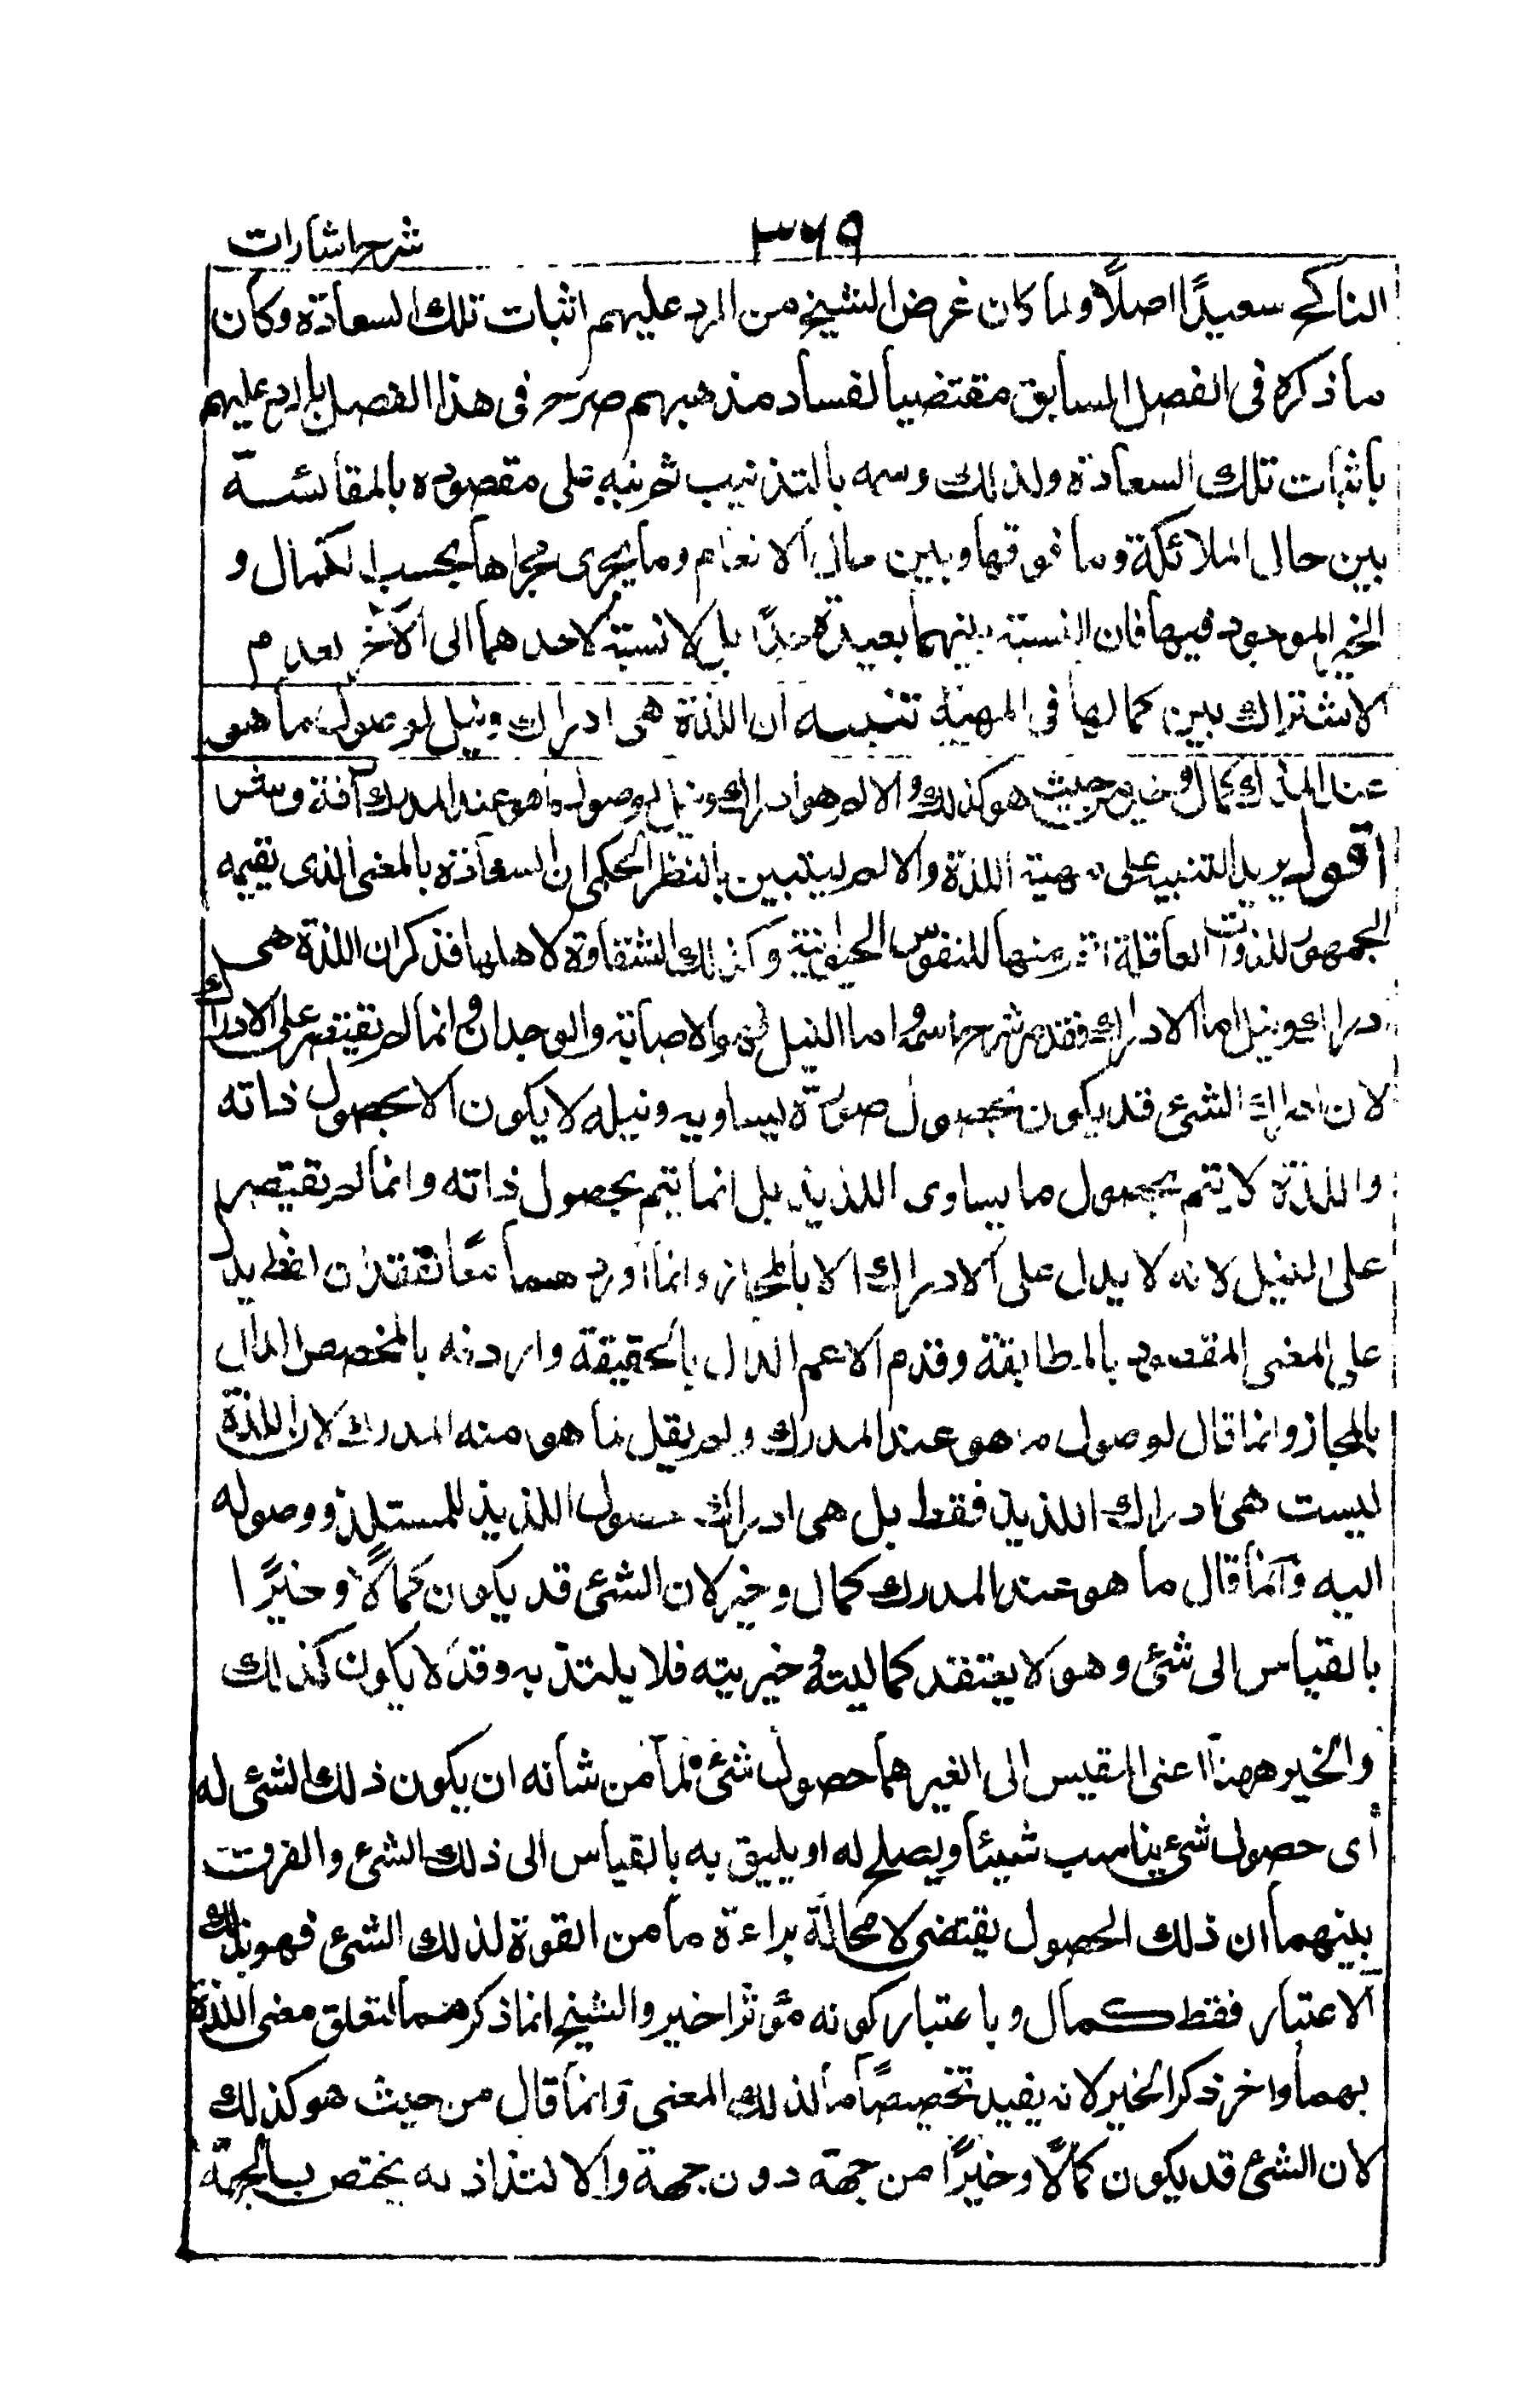 شرح اشارات
٣٦٩
الناكح سعيدًا اصلًا ولما كان غرض الشيخ من الرد عليهم اثبات تلك السعادة وكان
ما ذكره فى الفصل السابق مقتضيا لفساد مذهبهم صرح فى هذا الفصل بالرد عليهم
باثبات تلك السعادة ولذلك وسمه بالتذنيب ثم نبه على مقصوده بالمقائسة
بين حال الملائكة وما فوقها وبين حال الانعام وما يجرى مجراها بحسب الكمال و
الخير الموجود فيها فان النسبة بينهما بعيدة جدًا بل لا نسبة لاحدهما الى الآخر لعدم
الاشتراك بين كمالها فى المهية تنبيه ان اللذة هى ادراك ونيل لوصول ما هو
عند المدرك كمال وخير من حيث هو كذلك والالم هو ادراك ونيل لوصول ما هو عند المدرك آفة وشر
اقول يريد التنبيه على مهية اللذة والالم ليتبين بالنظر الحكمى ان السعادة بالمعنى الذى يفهمه
الجمهور للذوات العاقلة اتم منها للنفوس الحيوانية وكذلك الشقاوة لاهلها فذكر ان اللذة هى
ادراك ونيل اما الادراك فقد مر شرح اسمه واما النيل فهو الاصابة والوجدان وانما لم يقتصر على الادراك
لان ادراك الشئ قد يكون بحصول صورة يساويه ونيله لا يكون الا بحصول ذاته
واللذة لا يتم بحصول ما يساوى اللذيذ بل انما يتم بحصول ذاته وانما لم يقتصر
على النيل لانه لا يدل على الادراك الا بالمجاز وانما اورد هما معًا لفقدان لفظ يدل
على المعنى المقصود بالمطابقة وقدم الاعم الدال بالحقيقة واردفه بالمخصص الدال
بالمجاز وانما قال لوصول ما هو عند المدرك ولم يقل لما هو عند المدرك لان اللذة
ليست هى ادراك اللذيذ فقط بل هى ادراك حصول اللذيذ للمستلذ ووصوله
اليه وانما قال ما هو عند المدرك كمال وخير لان الشئ قد يكون كمالًا وخيرًا
بالقياس الى شئ وهو لا يعتقد كماليته وخيريته فلا يلتذ به وقد لا يكون كذلك
والخير ههنا اعنى المقيس الى الغير هما حصول شئ لما من شانه ان يكون ذلك الشئ له
أى حصول شئ يناسب شيئا ويصلح له او يليق به بالقياس الى ذلك الشئ والفرق
بينهما ان ذلك الحصول يقتضى لا محالة براءة ما من القوة لذلك الشئ فهو بذلك
الاعتبار فقط كمال وباعتبار كونه مؤثرا خير والشيخ انما ذكرهما لتعلق معنى اللذة
بهما واخر ذكر الخير لانه يفيد تخصيصًا ما لذلك المعنى وانما قال من حيث هو كذلك
لان الشئ قد يكون كمالًا وخيرًا من جهة دون جهة والالتذاذ به يختص بالجهة